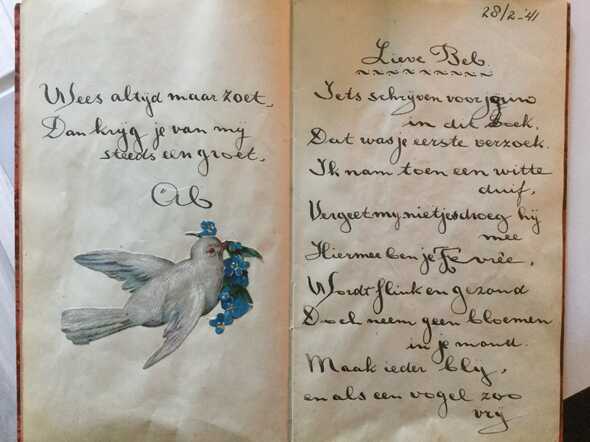 Wees altijd maar zoet.
Dan krijg je van mij
steeds een groet.
Ab
28/2-'41
Lieve Beb.
Iets schrijven voor jouw
in dit boek.
Dat was je eerste verzoek.
Ik nam toen een witte
duif,
Vergeetmynietjes droeg hij
mee
Hiermee ben je Te vrêe,
Wordt flink en gezond
Doch neem geen bloemen
in je mond.
Maak ieder bly,
en als een vogel zoo
vrij